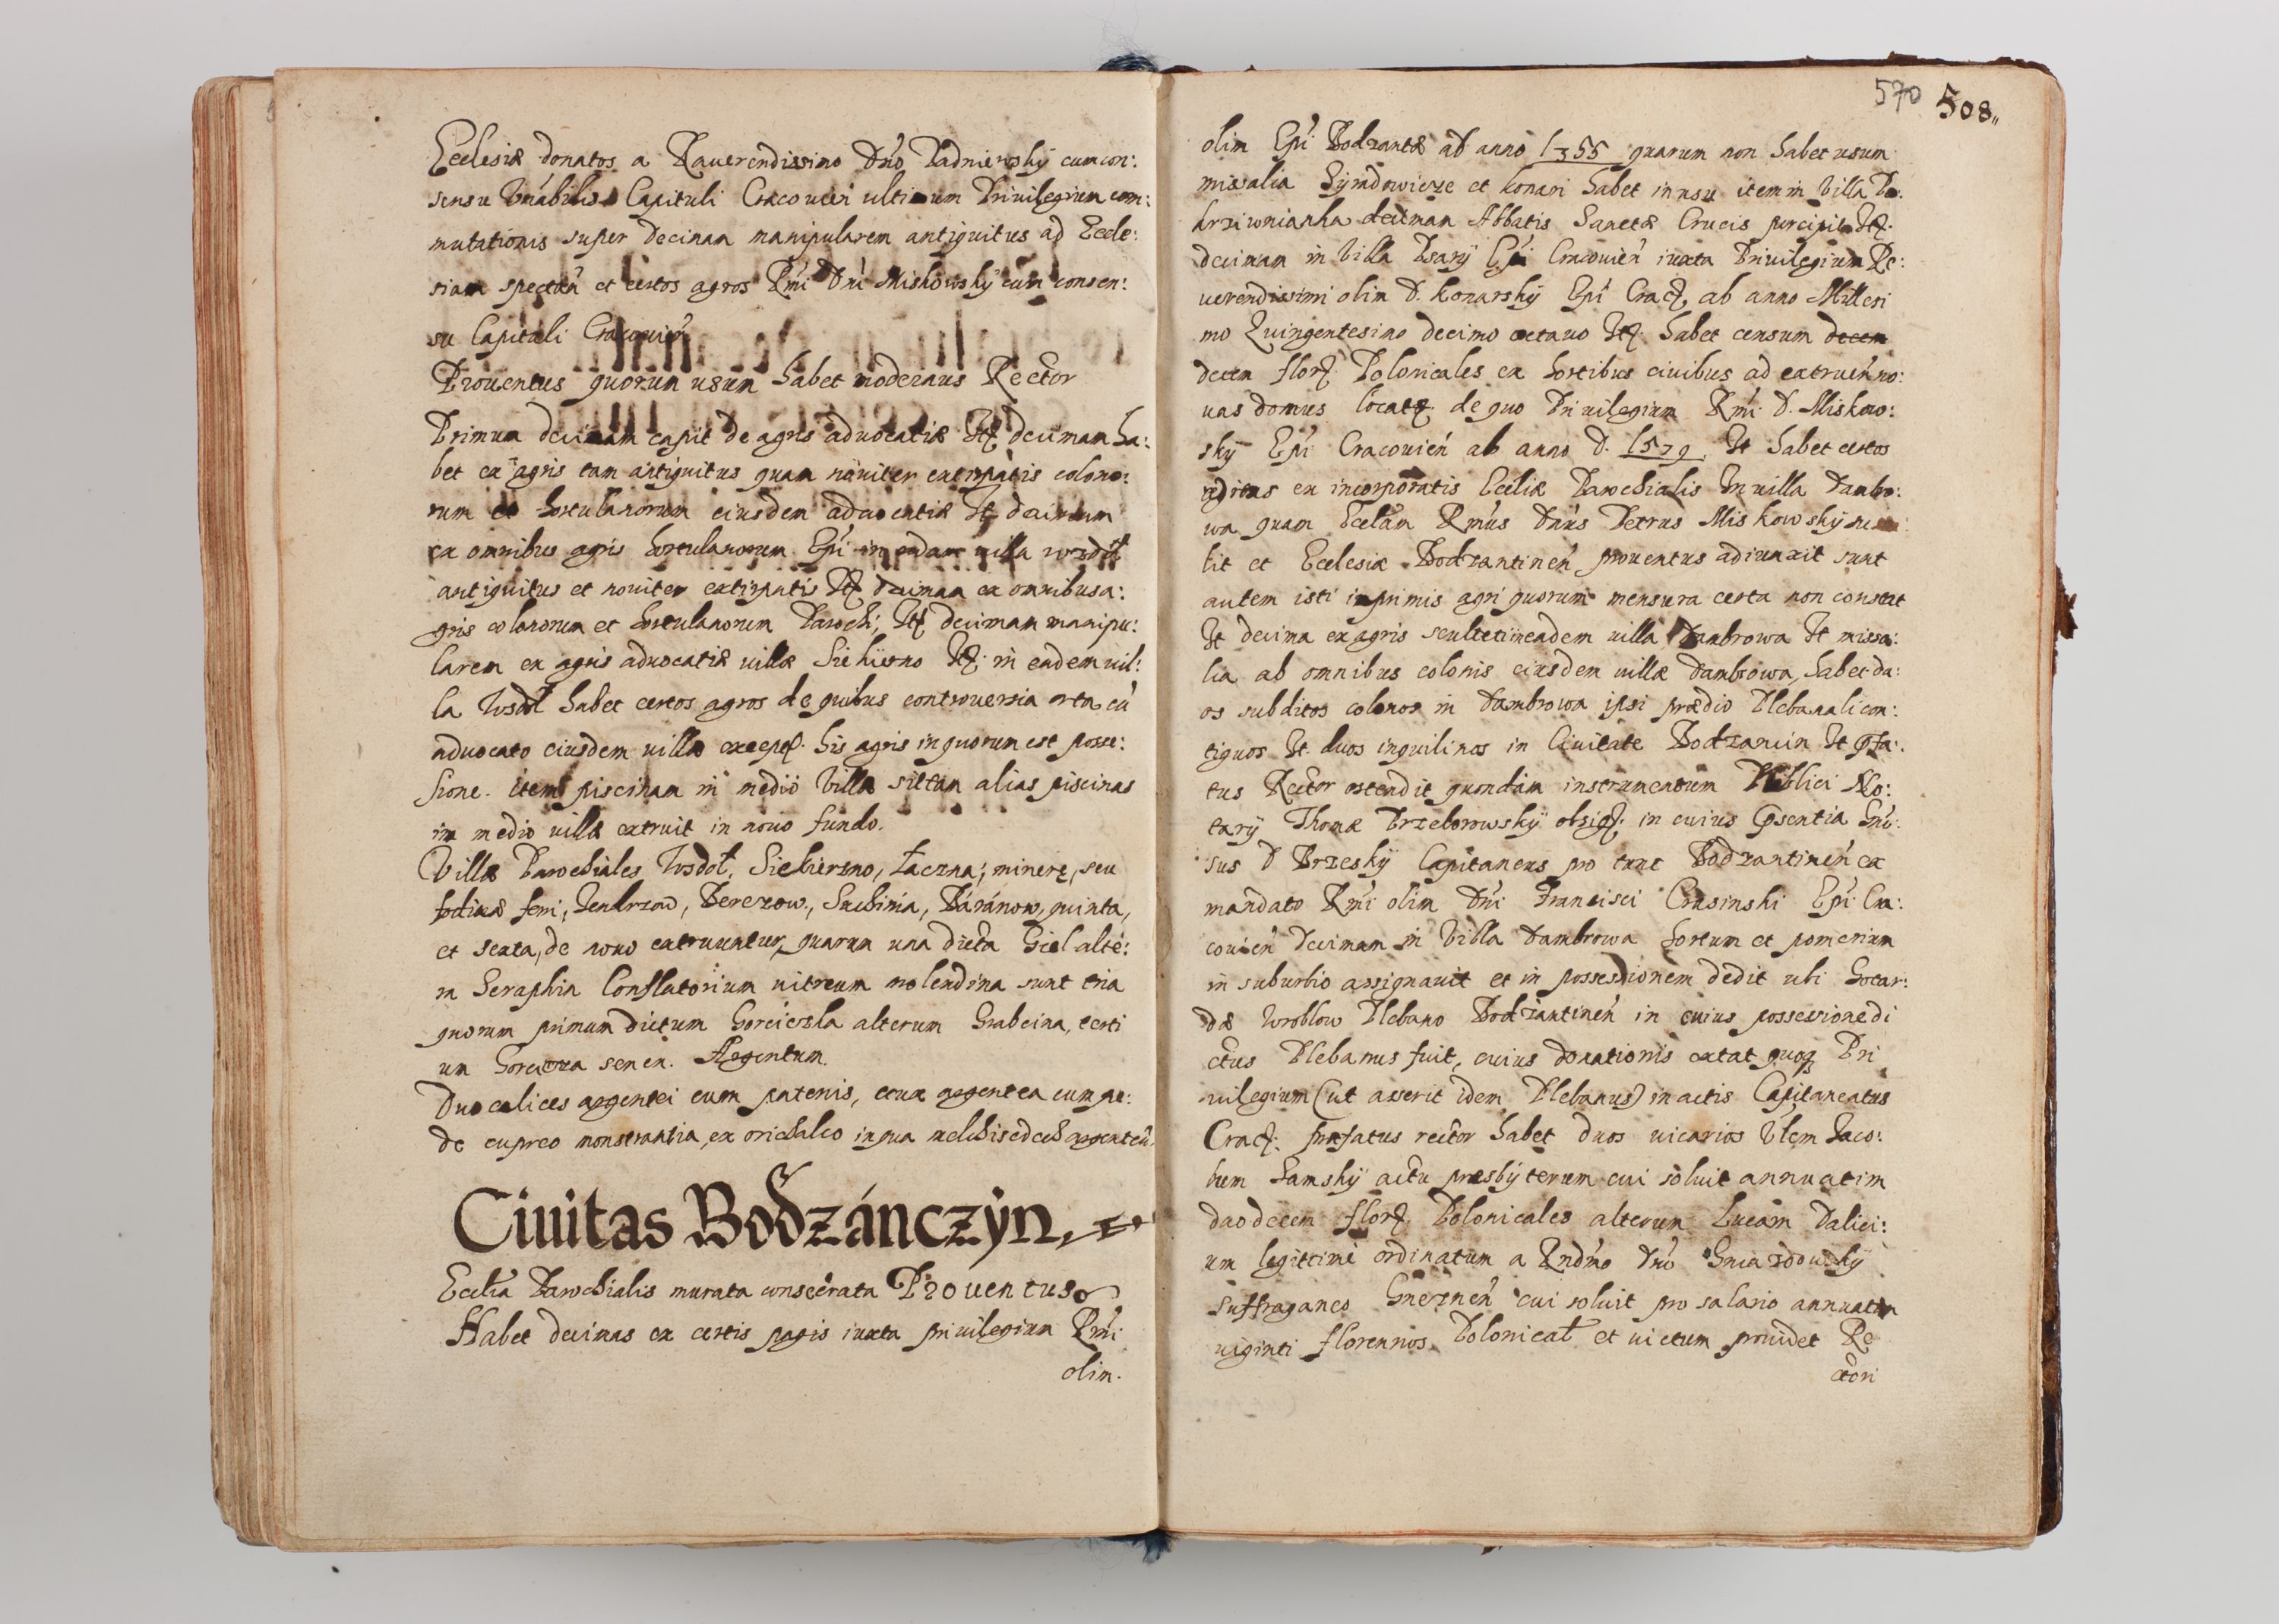 Ecclesiæ donatos a Rauerendissimo Dńo Padniewskÿ cum con:
sensu Vnábilis Capituli Cracouień ultimum Priuilegium com:
mutationis super decimam manipularem antiquitus ad Eccle:
siam spectań et certos agros Rmí Dńi Miskowskÿ cum consen:
su Capituli Cracouień
Prouentus quorum usum habet modernus Rector
Primum decimam capit de agris aduocatiæ Itꝫ decimam ha:
bet ex agris tam antiquitus quam nouiter extirpatis colono:
rum et hortulanorum eiusdem aduocatiæ It decimam
ex omnibus agris hortulanorum Epí in eadem uilla wzdół
antiquitus et nouiter extirpatis Itꝫ decimam ex omnibus a:
gris colonorum et hortulanorum Parochi, Itꝫ decimam manipu:
larem ex agris aduocatiæ uillæ Siekierno Itꝫ in eadem uil:
la Wzdół habet certos agros de quibus controuersia orta cū
aduocato eiusdem uillæ exceptꝫ his agris in quorum est posse:
sione. item piscinam in medio Villæ sitam alias piscinas
in medio uillæ extruit in nouo fundo.
Villæ Parochiales Wzdół, Siekierzno, Łaczna; mineræ, seu
fodinæ ferri, Jendrzow, Berezow, Suchinia, Báránow, quinta,
et sexta, de nouo extruuntur, quarum una dicta Giel alte:
ra Seraphin Conflatorium uitreum molendina sunt tria
quorum primum dictum Gorciczka alterum Grabcina, terti
um senen. Argentum.
Duo calices argentei cum patenis, crux argentea cum pe:
de cupreo monstrantia, ex orichalco in qua melchisedech argenteū
Ciuitas Bodzánczÿn
Ecclia Parochialis murata consecrata Prouentus
Habet decimas ex certis pagis iuxta priuilegium Rmí
olim.
570 508
olim Epí Bodzantæ ab anno 1355 quarum non habet usum
missalia et Konari habet in usu item in Villa Po:
krziwnianka decimam Abbatis Sanctæ Crucis percipit Itꝫ
decimam in Villa Psarÿ Epí Cracouień iuxta Priuilegium Re:
uerendissimi olim D. Konarskÿ Epí Cracꝫ ab anno Millesi
mo Quingentesimo decimo octauo Itꝫ habet censum decem
decem florꝫ Polonicales ex hortibus ciuibus ad extruen no:
uas domus locatꝫ de quo Priuilegium Rmí D. Miskow:
skÿ Epí Cracouień ab anno D. 1579. It habet certos
reditus ex incorporatis Eccliæ Parochialis In uilla Dambro:
wa quam Ecclam Rmús Dńus Petrus Miskowskÿ
lit et Ecclesiæ Bodzantineń prouentus adiunxit sunt
autem isti inprimis agri quorum mensura certa non constat
It decima ex agris sculteti in eadem uilla Dambrowa It missa:
lia ab omnibus colonis eiusdem uillæ Dambrowa, habet du:
os subditos colonos in Dambrowa ipsi prædio Plebanali con:
tiguos It duos inquilinos in Ciuitate Bodzancin It ꝓfa:
tus Rector ostendit quondam instrumentum Publici No:
tarÿ Thomæ Przeborowskÿ obsigꝫ in cuius ꝓsentia Gńo:
sus D Brzeskÿ Capitaneus pro tunc Bodzantineń ex
mandato Rmí olim Dńi Francisci Crasinski Epí Cra:
couień decimam in Villa Dambrowa hortum et pomerium
in suburbio assignauit et in possessionem dedit ubi
dæ Wroblow Plebano Bodzantineń in cuius possessione di
ctus Plebanus fuit, cuius donationis extat quoqꝫ Pri
uilegium (ut asserit idem Plebanus) in actis Capitaneatus
Cracꝫ præfatus rector habet duos uicarios Vlem Jaco:
bum actu presbÿterum cui soluit annuatim
duodecem florꝫ Polonicales alterum Lucam Dalici:
um legittime ordinatum a Rndḿo Dńo
Suffraganeo Gnezneń cui soluit pro salario annuatim
uiginti florennos Polonical et uictum prouidet Re
ctori